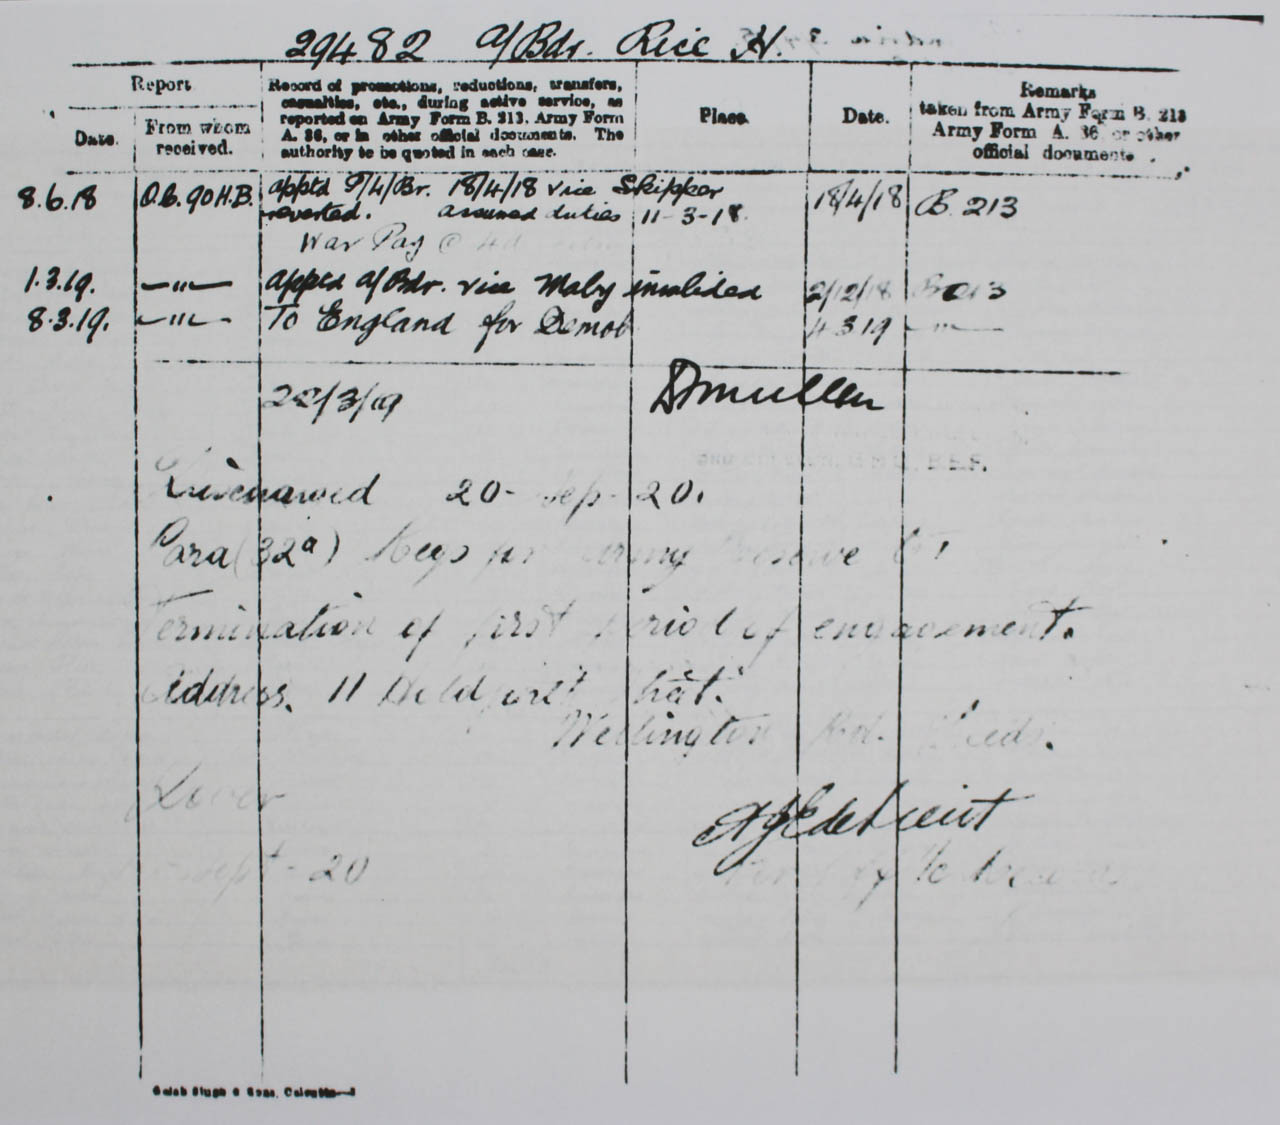 29482 a/Bdr. Rice H.
Report
Date.
From whom
received.
Record of promotions, reductions, transfers,
casualties, etc., during active service, as
reported on Army Form B. 213, Army Form
A. 36, or in other official documents. The
authority to be quoted in each case.
Place.
Date.
Remarks
taken from Army Form B. 213
Army Form A. 36 or other
official documents.
8.6.18 O.C. 90 H.B. apptd P/A/Br. 18/4/18 vice Skipper 18/4/18 B. 213
reverted. assumed duties 11-3-18.
War Pay @ 4d
1.3.19. —"— apptd a/Bdr. vice Maby invalided 2/12/18 B 213
8.3.19. —"— To England for Demob 4 3 19 —"—
22/3/19 Dmullen
B.E.F.
Discharged 20- Sep- 20.
Para (32a) Regs for Army Reserve
Termination of first period of engagement.
Address. 11
Wellington Rd. Leeds.
Dover
Sept- 20
Caleb Singh & Sons, Calcutta